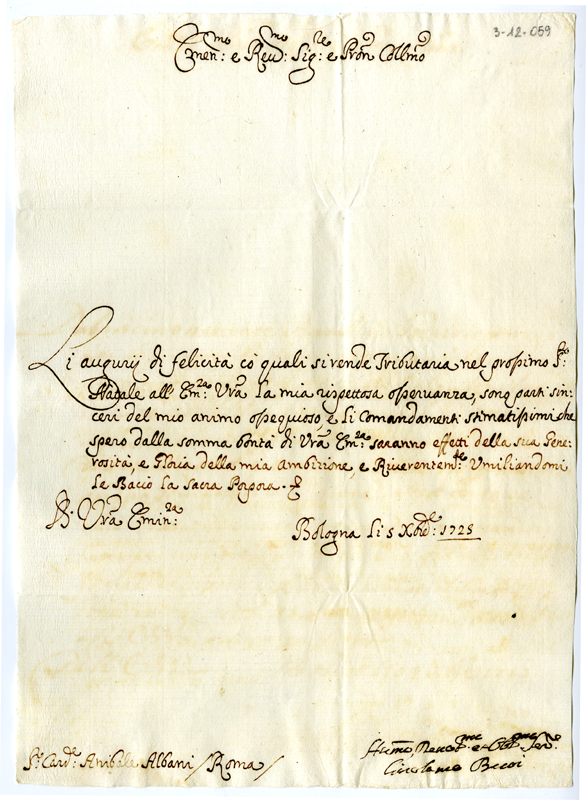 3-12-059
Emen:mo e Reud:mo Sig:re e Pron Collmo
Li augurij di felicità co' quali si rende Tributaria nel prossimo S:to
Natale all' Em:za Vra la mia rispettosa osservanza, sono parti sin:
ceri del mio animo ossequioso, e li comandamenti stimatissimi che
spero dalla somma bontà di Vra Em:za saranno effetti della sua Gene
rosità, e Gloria della mia Ambizione, e Riverentem:te Umiliandomi
Le Bacio la Sacra Porpora.
D. Vra Emin:za
Bologna li 5 Xbre: 1725
Sr Card:le Anibale Albani / Roma /
Humo, Devotmo et Obb:mo Ser:re
Girolamo